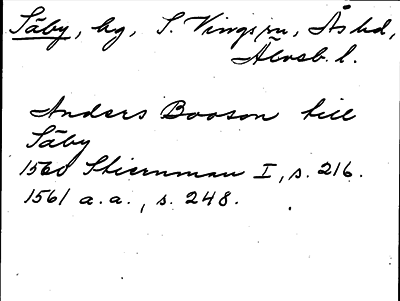 Säby, hg, S. Vings sn, Ås hd,
Älvsb. l.
Anders Booson till
Säby
1560 Stiernman I, s. 216.
1561 a. a., s. 248.